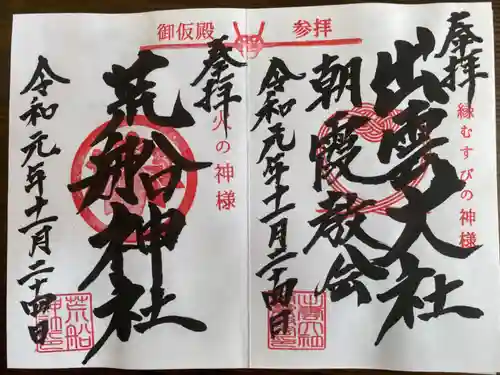 参拝
奉拝
縁むすびの神様
出雲大社
朝霞教会
令和元年十一月二十四日
御仮殿
奉拝
火の神様
荒船神社
令和元年十一月二十四日
荒船